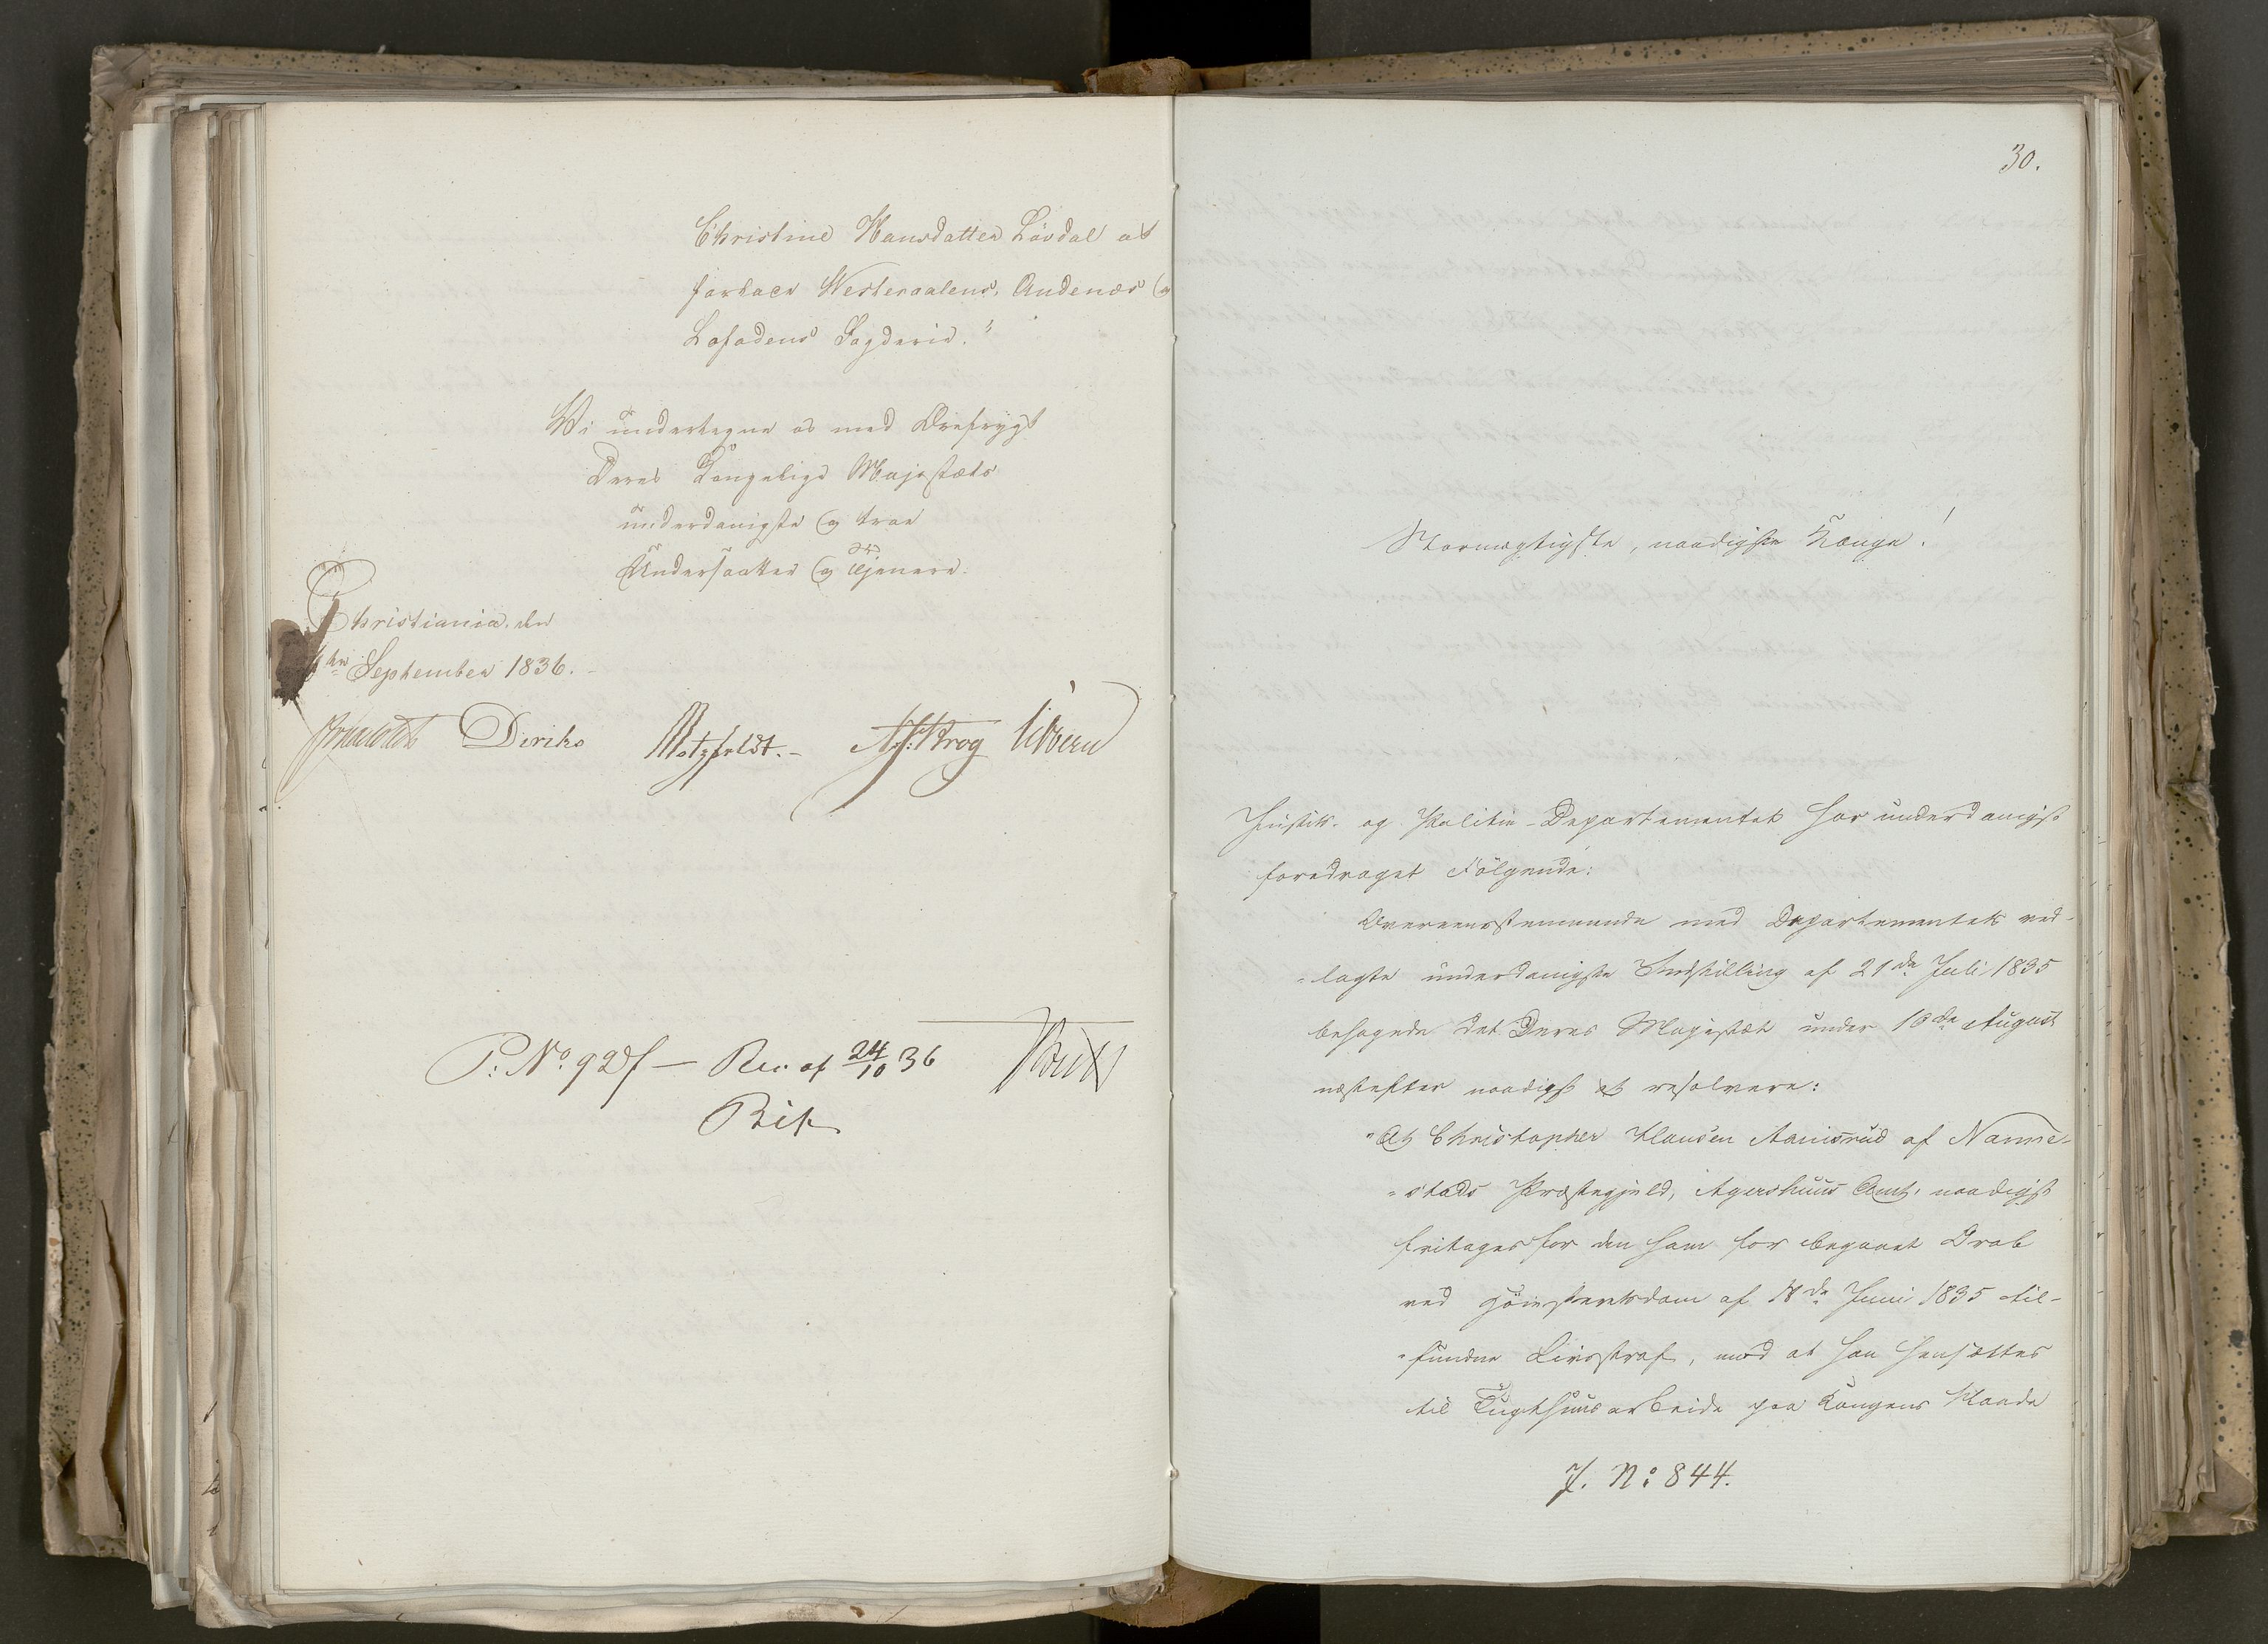 Christine Hansdatter Lövdal at
forlade Westeraalens, Andenæs og
Lofodens Fogderie."
Vi undertegne os med Ærefrygt
Deres Kongelige Majestæts
underdanigste og troe
Undersaatter og Tjenere.
Christiania, den
September 1836.
Diriks Motzfeldt.- Krog Viberu
P: No. 927 — Res. af 24/10 36
30.
Stormægtigste, naadigste Konge!
Justits- og Politie-Departementet har underdanigst
foredraget Følgende:
Overeensstemmende med Departementets ved-
-lagte underdanigste Indstilling af 21de Juli 1835
behagede det Deres Majestæt under 10de August
næstefter naadigst at resolvere:
"At Christopher Hansen Aamisrud af Nanne-
-stads Præstegjeld, Agershuus Amt, naadigst
fritages for den ham for begaaet Drab
ved Höiesteretsdom af Juni 1835 til-
-fundne Livsstraf, mod at han hensættes
til Tugthuusarbeide paa Kongens Naade
J. No: 844.